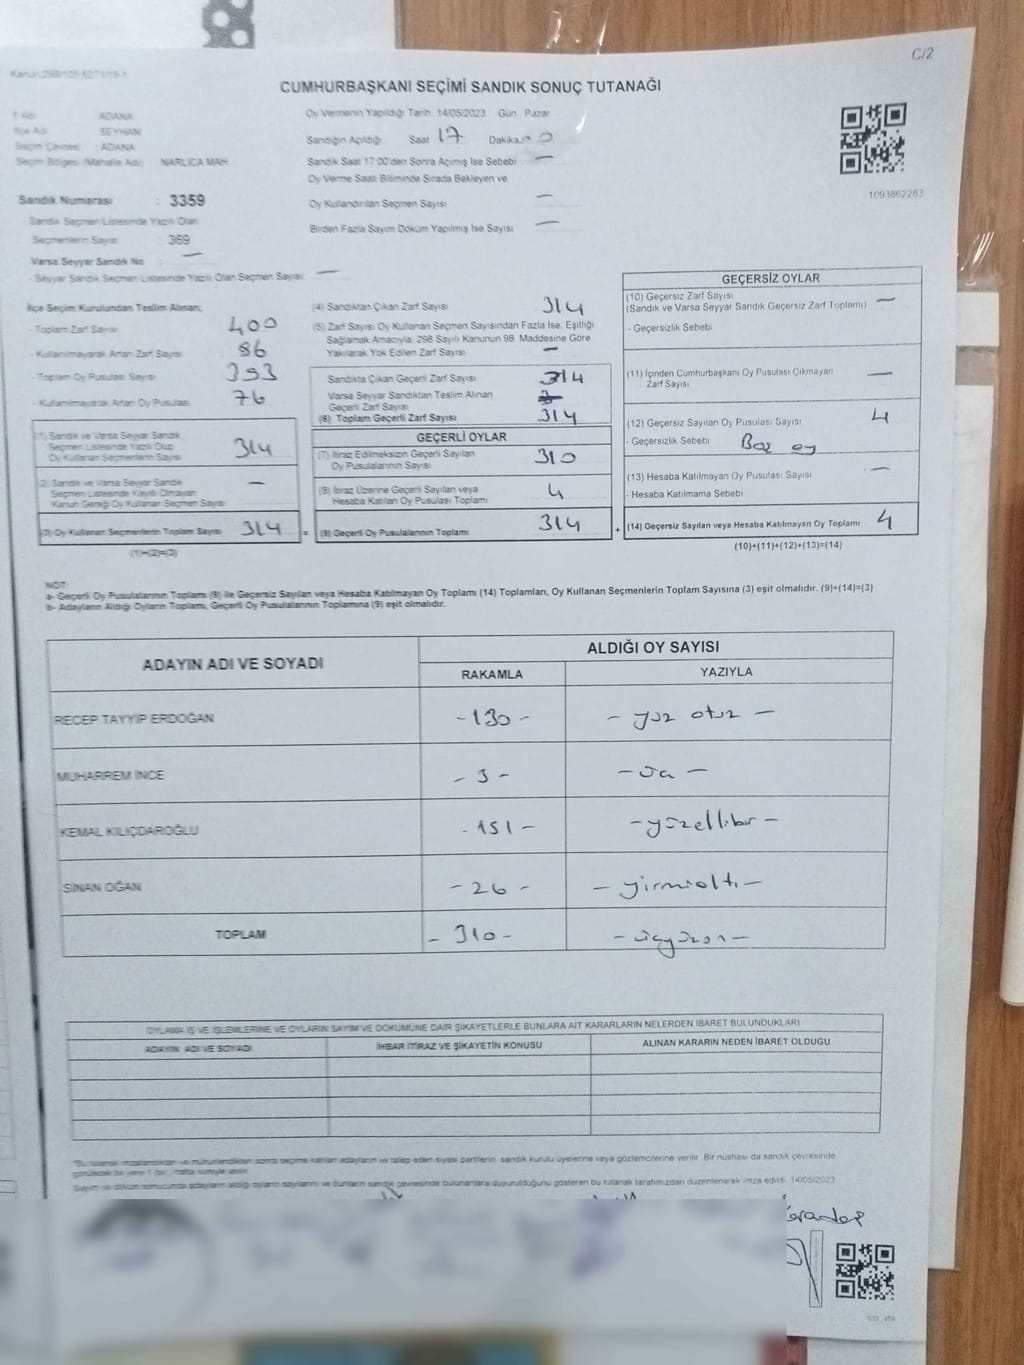 C/2
Kanun:298/105-6271/18-1
CUMHURBAŞKANI SEÇİMİ SANDIK SONUÇ TUTANAĞI
İl Adı : ADANA
İlçe Adı : SEYHAN
Seçim Çevresi : ADANA
Seçim Bölgesi (Mahalle Adı) NARLICA MAH.
Oy Vermenin Yapıldığı Tarih 14/05/2023 Gün Pazar
Sandığın Açıldığı Saat 17 Dakika
Sandık Saat 17:00'den Sonra Açımış İse Sebebi —
Oy Verme Saati Bitiminde Sırada Bekleyen ve
Oy Kullandırılan Seçmen Sayısı —
Birden Fazla Sayım Döküm Yapılmış İse Sayısı —
1093862283
Sandık Numarası : 3359
Sandık Seçmen Listesinde Yazılı Olan
Seçmenlerin Sayısı : 369
Varsa Seyyar Sandık No : —
- Seyyar Sandık Seçmen Listesinde Yazılı Olan Seçmen Sayısı: —
İlçe Seçim Kurulundan Teslim Alınan;
- Toplam Zarf Sayısı 400
- Kullanılmayarak Artan Zarf Sayısı 86
- Toplam Oy Pusulası Sayısı 393
- Kullanılmayarak Artan Oy Pusulası 76
(1) Sandık ve Varsa Seyyar Sandık
Seçmen Listesinde Yazılı Olup
Oy Kullanan Seçmenlerin Sayısı 314
(2) Sandık ve Varsa Seyyar Sandık
Seçmen Listesinde Kayıtlı Olmayan
Kanun Gereği Oy Kullanan Seçmen Sayısı —
(3) Oy Kullanan Seçmenlerin Toplam Sayısı 314
(1)+(2)=(3)
(4) Sandıktan Çıkan Zarf Sayısı 314
(5) Zarf Sayısı Oy Kullanan Seçmen Sayısından Fazla İse, Eşitliği
Sağlamak Amacıyla, 298 Sayılı Kanunun 98. Maddesine Göre
Yakılarak Yok Edilen Zarf Sayısı —
Sandıkta Çıkan Geçerli Zarf Sayısı 314
Varsa Seyyar Sandıktan Teslim Alınan
Geçerli Zarf Sayısı
(6) Toplam Geçerli Zarf Sayısı 314
GEÇERLİ OYLAR
(7) İtiraz Edilmeksizin Geçerli Sayılan
Oy Pusulalarının Sayısı 310
(8) İtiraz Üzerine Geçerli Sayılan veya
Hesaba Katılan Oy Pusulası Toplamı 4
= (9) Geçerli Oy Pusulalarının Toplamı 314
GEÇERSİZ OYLAR
(10) Geçersiz Zarf Sayısı —
(Sandık ve Varsa Seyyar Sandık Geçersiz Zarf Toplamı)
- Geçersizlik Sebebi
(11) İçinden Cumhurbaşkanı Oy Pusulası Çıkmayan —
Zarf Sayısı
(12) Geçersiz Sayılan Oy Pusulası Sayısı 4
- Geçersizlik Sebebi Boş oy
(13) Hesaba Katılmayan Oy Pusulası Sayısı —
- Hesaba Katılmama Sebebi
+ (14) Geçersiz Sayılan veya Hesaba Katılmayan Oy Toplamı 4
(10)+(11)+(12)+(13)=(14)
NOT:
a- Geçerli Oy Pusulalarının Toplamı (9) ile Geçersiz Sayılan veya Hesaba Katılmayan Oy Toplamı (14) Toplamları, Oy Kullanan Seçmenlerin Toplam Sayısına (3) eşit olmalıdır. (9)+(14)=(3)
b- Adayların Aldığı Oyların Toplamı, Geçerli Oy Pusulalarının Toplamına (9) eşit olmalıdır.
ADAYIN ADI VE SOYADI ALDIĞI OY SAYISI
RAKAMLA YAZIYLA
RECEP TAYYİP ERDOĞAN - 130 - - yüz otuz -
MUHARREM İNCE - 3 - - üç -
KEMAL KILIÇDAROĞLU - 151 - - yüzellibir -
SİNAN OĞAN - 26 - - yirmialtı -
TOPLAM - 310 - - üçyüzon -
OYLAMA İŞ VE İŞLEMLERİNE VE OYLARIN SAYIM VE DÖKÜMÜNE DAİR ŞİKAYETLERLE BUNLARA AİT KARARLARIN NELERDEN İBARET BULUNDUKLARI
ADAYIN ADI VE SOYADI İHBAR İTİRAZ VE ŞİKAYETİN KONUSU ALINAN KARARIN NEDEN İBARET OLDUĞU
sandık kurulu üyelerine veya gözlemcilerine verilir. Bir nüshası da sandık çevresinde,
Sayım ve döküm sonucunda adayların aldığı oyların sayılarını ve bunların sandık çevresinde bulunanlara duyurulduğunu gösteren bu tutanak tarafımızdan düzenlenerek imza edildi. 14/05/2023